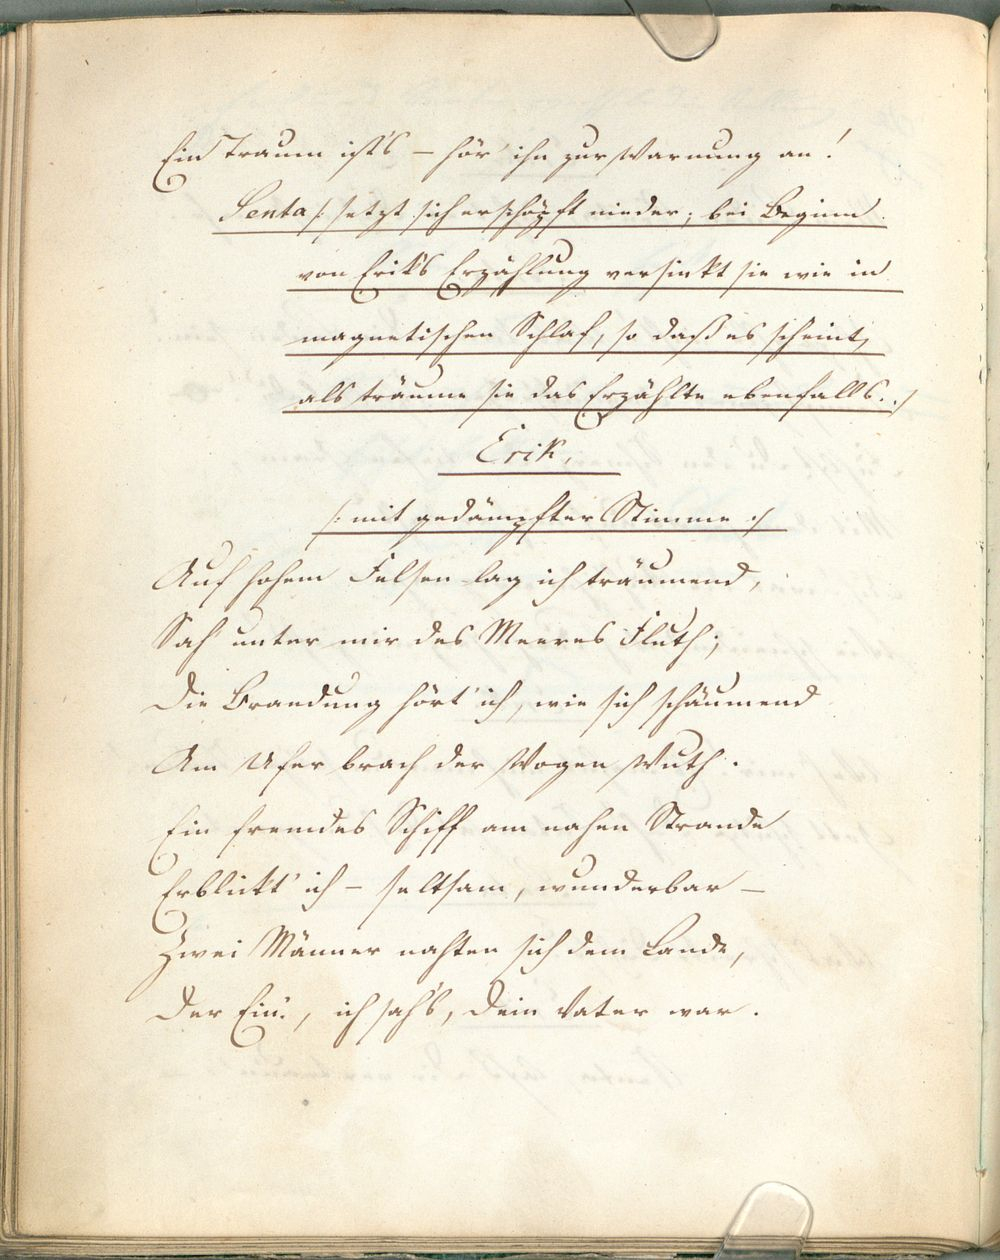 Ein Traum ist's – hör' ihn zur Warnung an!
Senta /: setzt sich erschöpft nieder; bei Beginn
von Erik's Erzählung versinkt sie wie in
magnetischen Schlaf, so daß es scheint,
als träume sie das Erzählte ebenfalls. :/
Erik.
/: mit gedämpfter Stimme :/
Auf hohem Felsen lag ich träumend,
Sah' unter mir des Meeres Fluth;
Die Brandung hört' ich, wie sich schäumend
Am Ufer brach der Wogen Wuth.
Ein fremdes Schiff am nahen Strande
Erblickt' ich – seltsam, wunderbar –
Zwei Männer nahten sich dem Lande,
Der Ein', ich sah's, Dein Vater war.